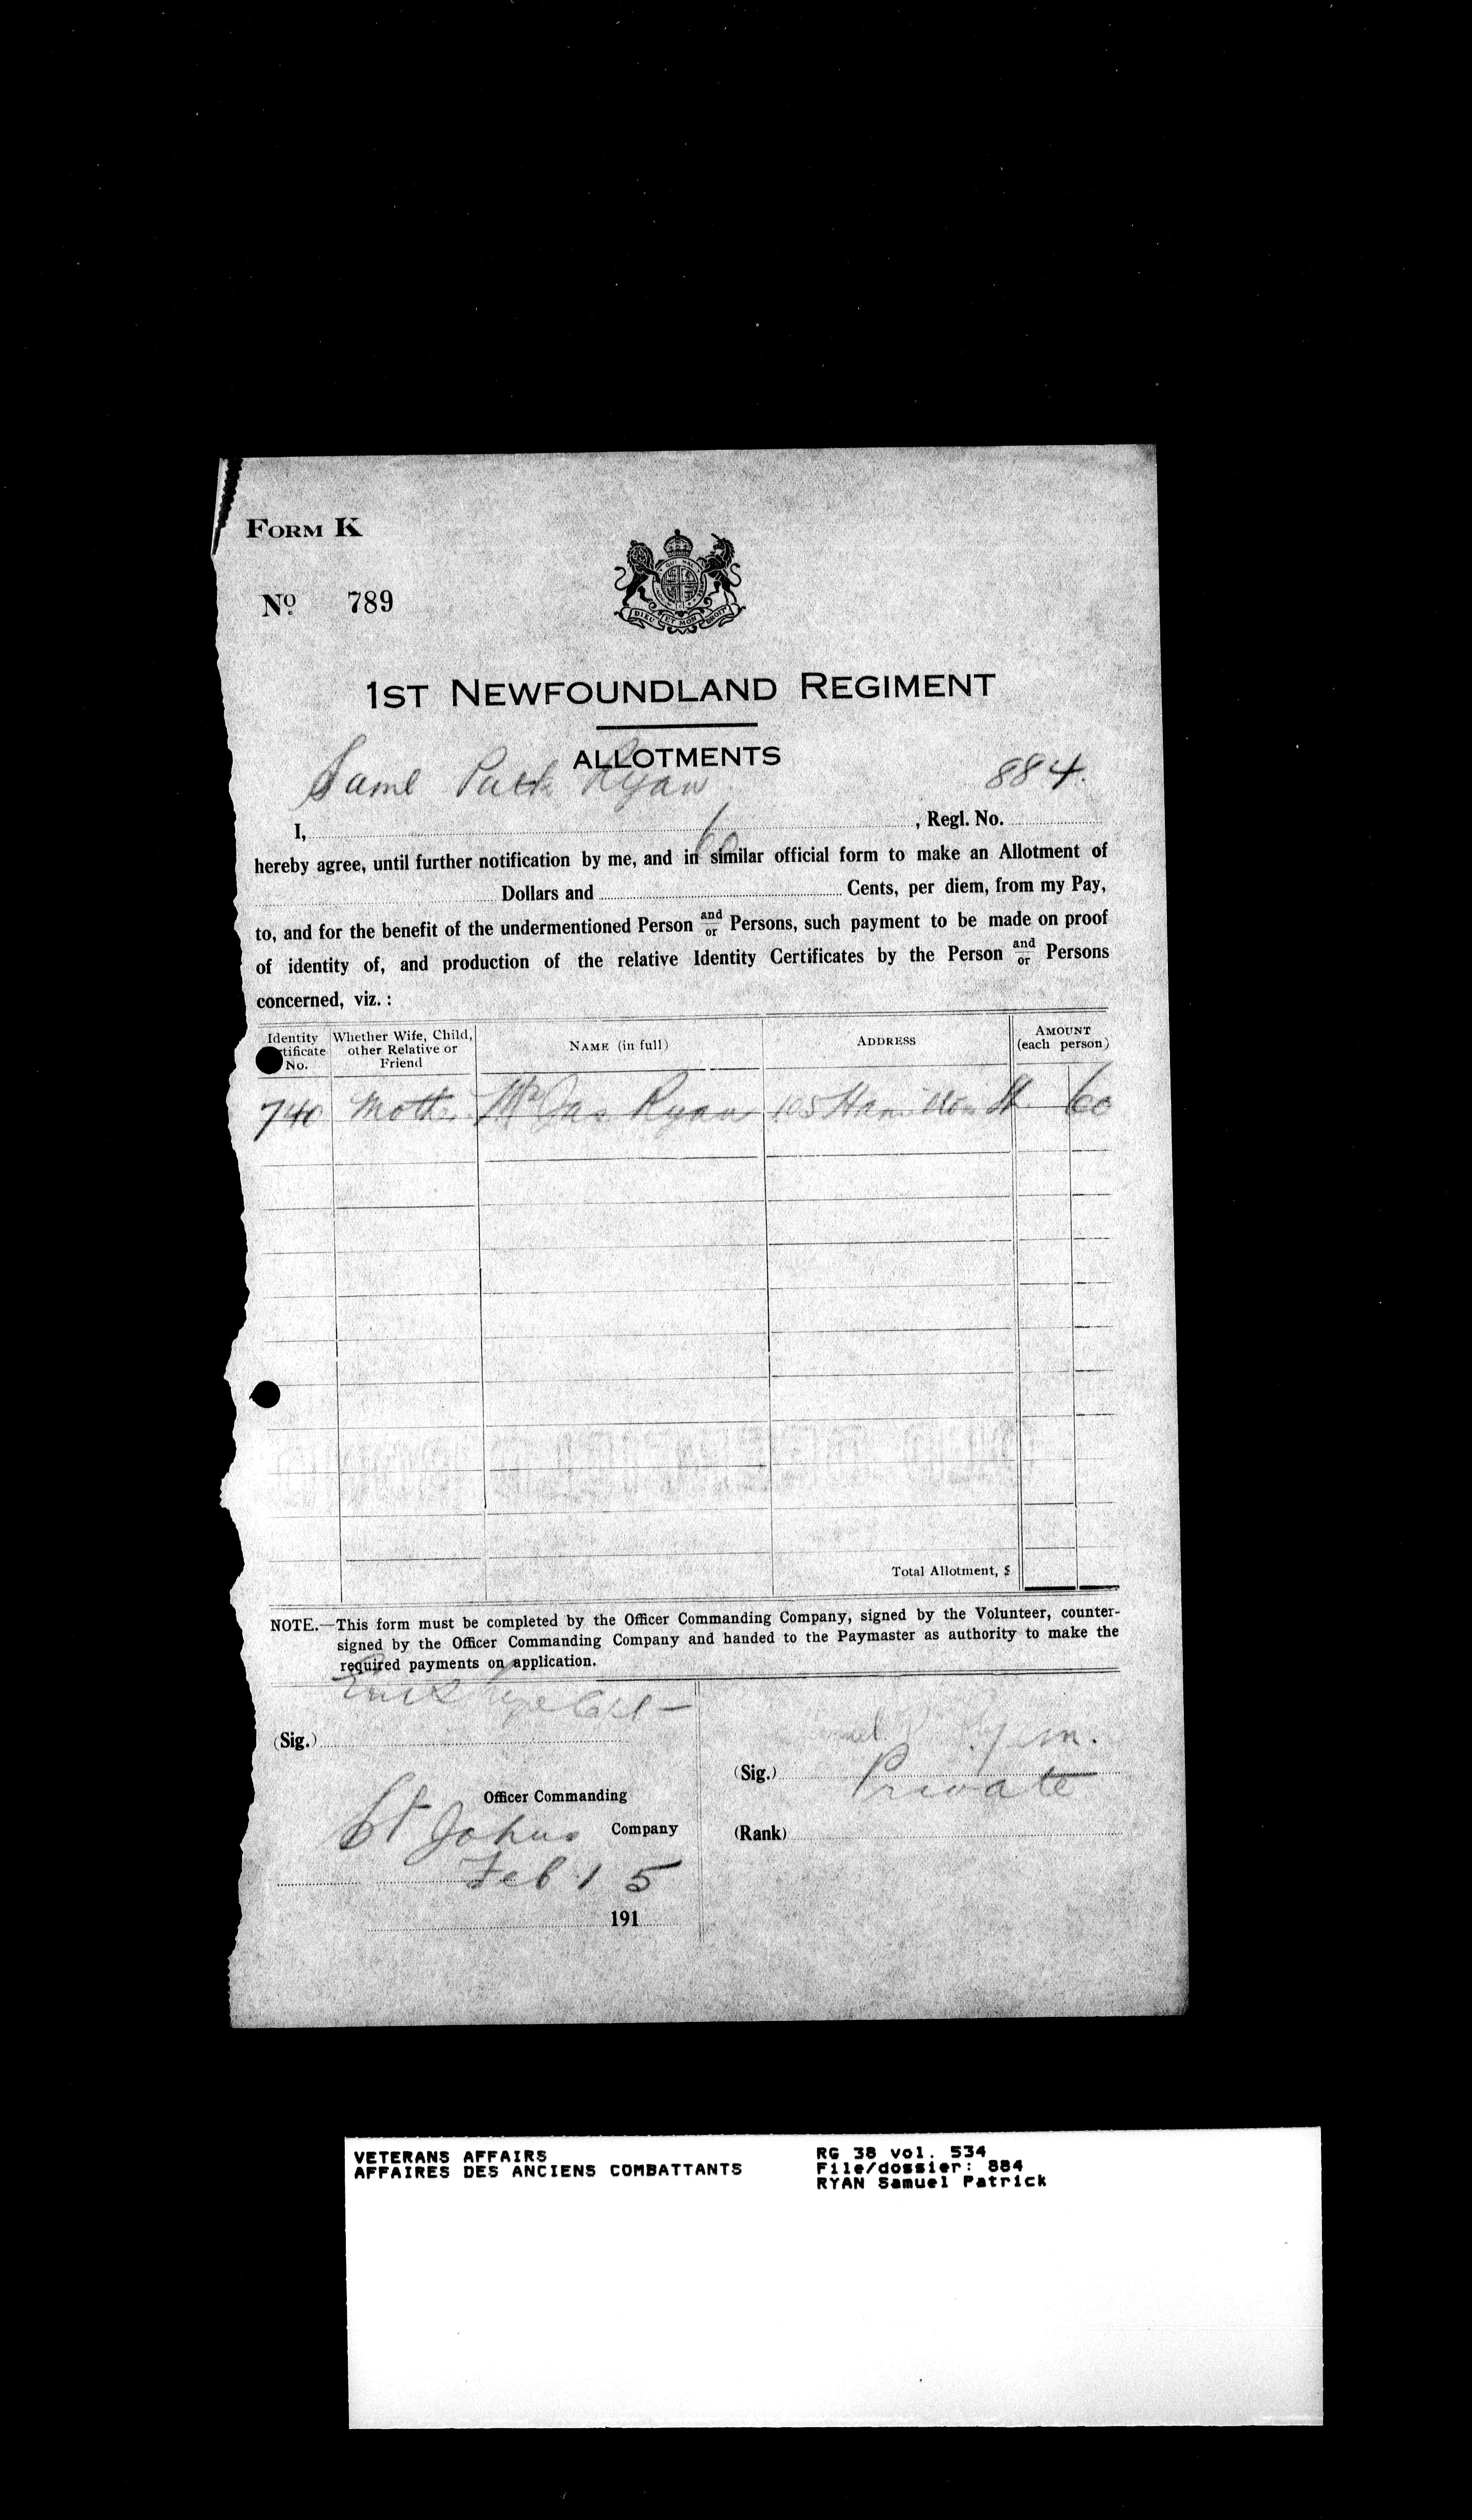 FORM K
No. 789
DIEU ET MON DROIT
1ST NEWFOUNDLAND REGIMENT
ALLOTMENTS
Saml Patk Ryan 884.
I, , Regl. No.
60
hereby agree, until further notification by me, and in similar official form to make an Allotment of
Dollars and Cents, per diem, from my Pay,
to, and for the benefit of the undermentioned Person and/or Persons, such payment to be made on proof
of identity of, and production of the relative Identity Certificates by the Person and/or Persons
concerned, viz.:
Identity tificate No. Whether Wife, Child, other Relative or Friend NAME (in full) ADDRESS AMOUNT (each person)
740 Moth Mrs Jas Ryan 105 Hamilton St. 60
Total Allotment, $
NOTE.—This form must be completed by the Officer Commanding Company, signed by the Volunteer, counter-
signed by the Officer Commanding Company and handed to the Paymaster as authority to make the
required payments on application.
(Sig.)
Officer Commanding
St Johns Company
Feb 15
191
(Sig.)
Private
(Rank)
VETERANS AFFAIRS
AFFAIRES DES ANCIENS COMBATTANTS
RG 38 vol. 534
File/dossier: 884
RYAN Samuel Patrick